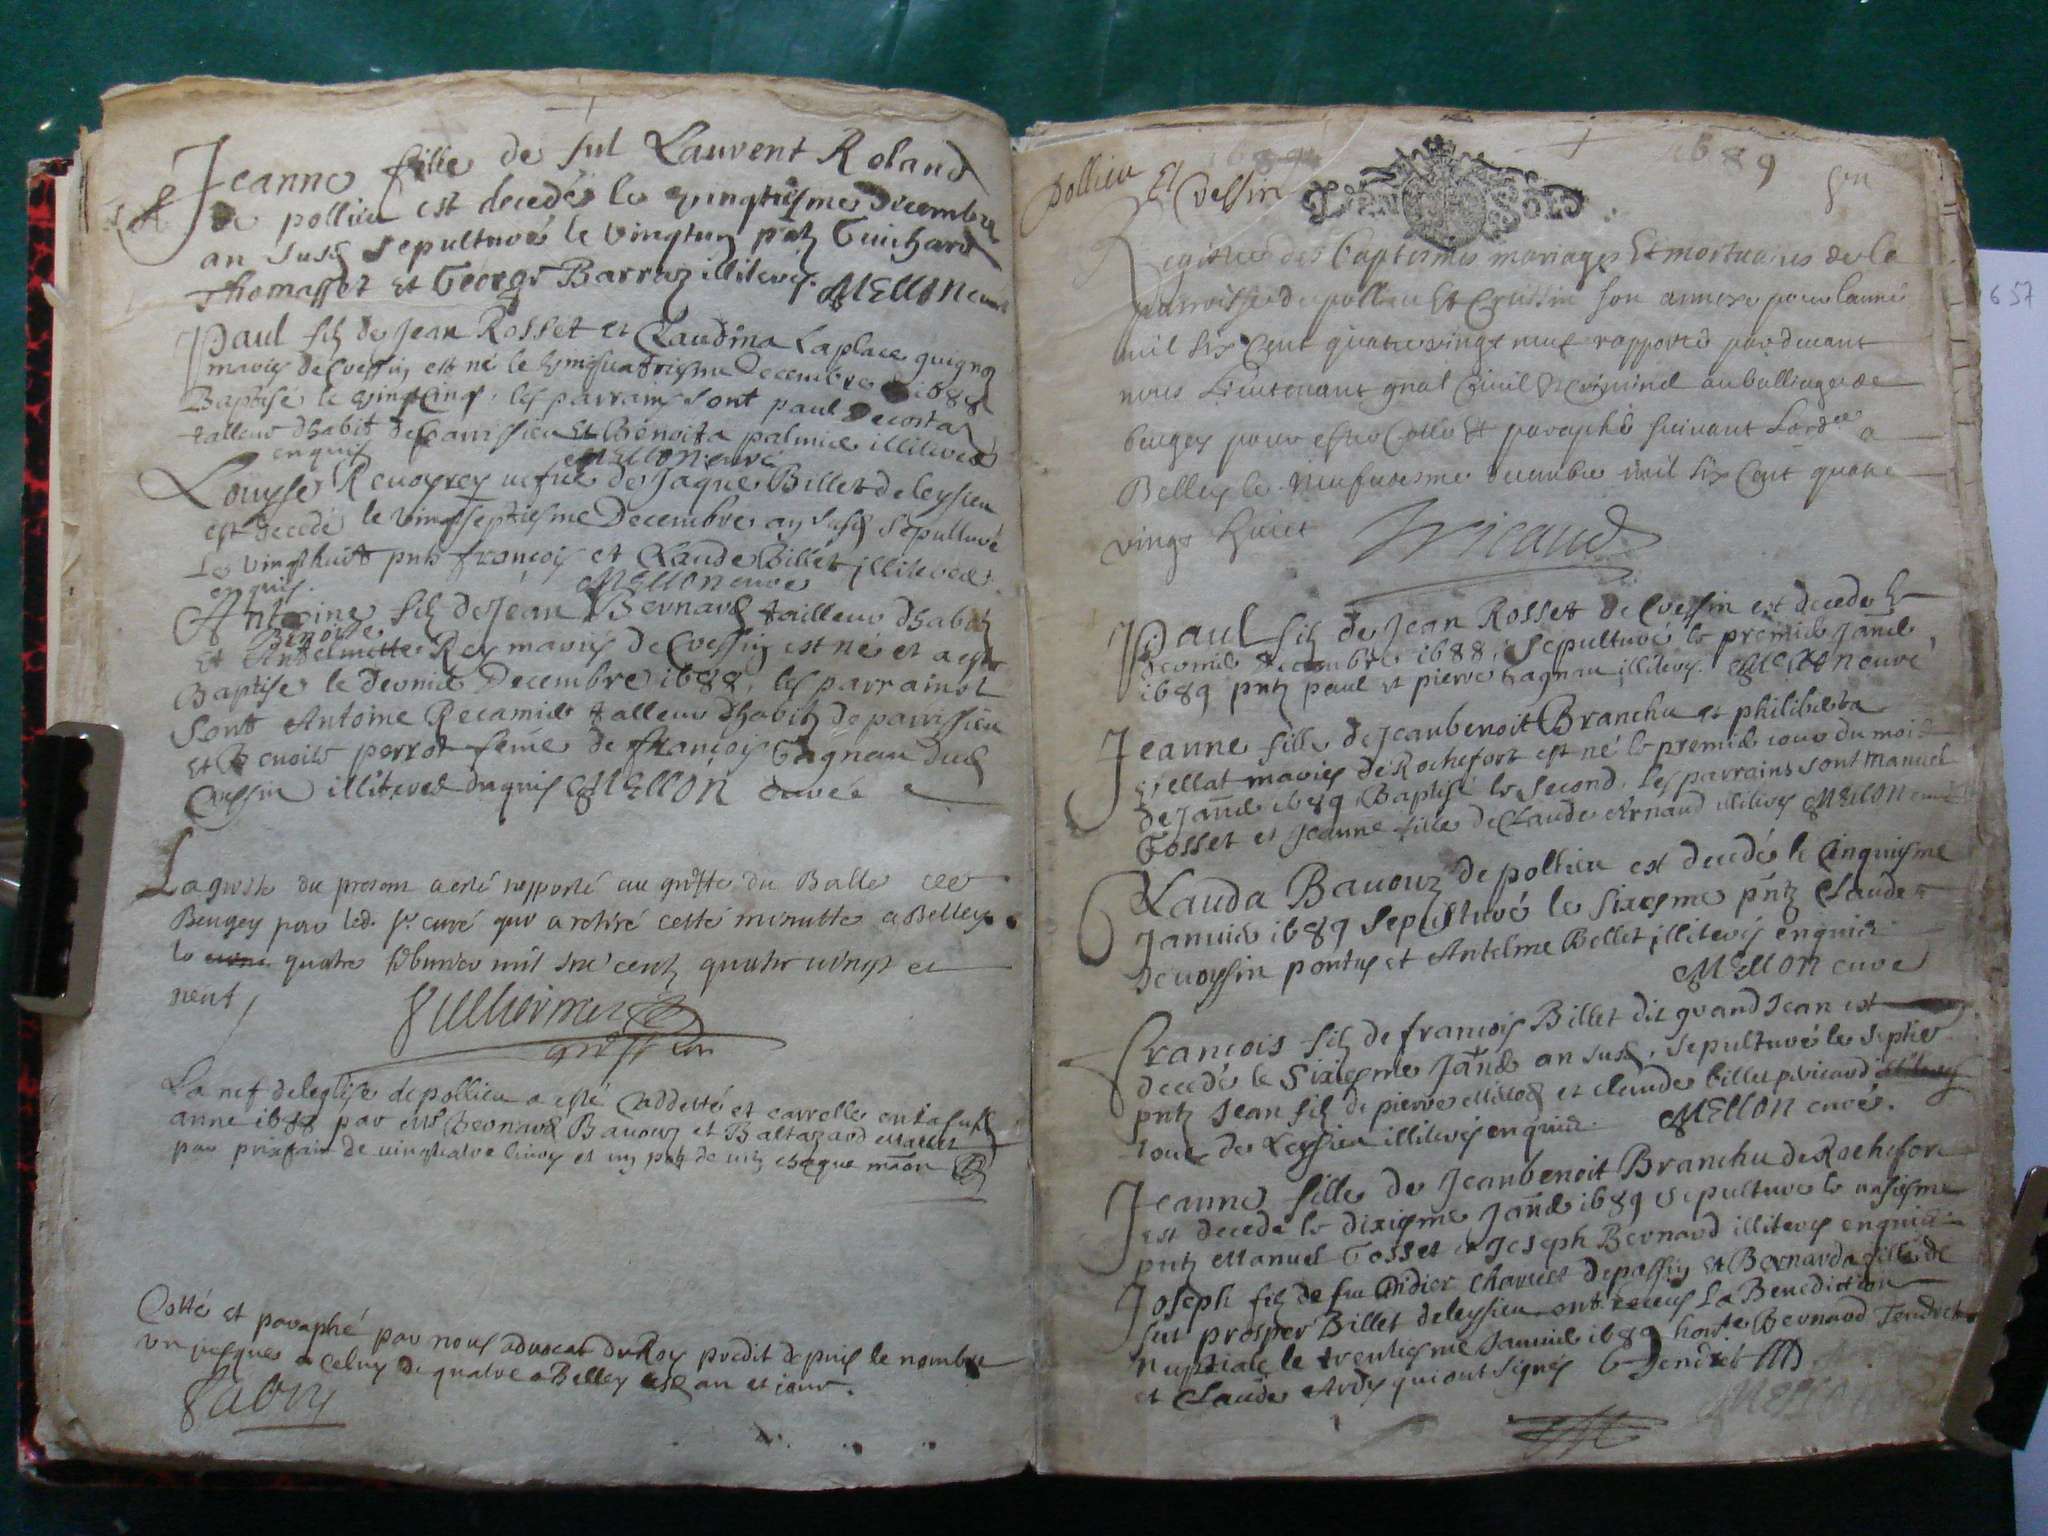 Jeanne fille de fut Laurent Roland
de pollieu est decedé le vingtiesme Decembre
an susd sepulturé le vingtun pntz Guichard
Thomasset et George Barraz illiteres. MELLON curé
Paul filz de Jean Rosset et Claudina Laplace
mariés de Cressin est né le Decembre 1688
Baptisé le vingtcinq, les parrains sont paul Decosta
talleur dhabit de parrissieu Et Benoita palmier illiteres
enquis MELLON curé
Louyse de Jaque Billet de leysieu
est decedé le vingtseptiesme Decembre an susd sepulturé
Le vingthuit pntz françois et Claude Billet illiteres
enquis. MELLON curé
Antoine filz de Jean Bernard tailleur dhabitz
Benoite
Et Antelmette Rey mariés de Cressin est né et a esté
Baptise le dernier Decembre 1688, les parrains
sont Antoine Recamier talleur dhabitz de parrissieu
Et Benoite perrot feme de françois Gagneau dud
Cressin illiteres enquis MELLON curé
La grosse du presant a esté rapporté au greffe du Balle de
Beugey par led. sr. curé qui a retiré cette minutte a Belley
le quatre febvrier mil six centz quatre vingt et
neuf
La nef de leglise de pollieu a esté et carrellé en la susd
anne 1688 par Bernard Bavouz et Baltazard
par prixfait de vingtquatre livres et un pot de vin chaque
Cotté et paraphé par nous advocat du Roy predit depuis le nombre
un jusques a celuy de quatre a Belley lesd an et jour.
Fabry
pollieu Et Cressin 1689
SOLS
Registre des Baptesmes mariages Et mortuaires de la
parroisse de pollieu Et Cressin son annexe pour lanné
mil six Cent quatre vingt neuf rapporté pardevant
nous Lieutenant gnal Civil & Criminel au balliage de
beugey pour estre Cotté Et paraphé suivant Lord a
Belley le neufviesme decembre mil six Cent quatre
vingt huict
Paul filz de Jean Rosset de Cressin est decedé le
dernier decembre 1688, sepulturé le premier Janer
1689 pntz paul et pierre Gagneau illiteres. MELLON curé
Jeanne fille de Jeanbenoit Branchu et philiberta
mariés de Rochefort est né le premier jour du mois
de Janer 1689 Baptisé le second, les parrains sont Manuel
Gosset et Jeanne fille de Claude Ernaud illiteres MELLON curé
Clauda Bavouz de pollieu est decedé le Cinquiesme
Janvier 1689 sepulturé le sixiesme pntz Claude
Devoyssin pontus et Antelme Bellet illiteres enquis
MELLON curé
François filz de françois Billet dit grand Jean est
decedé le sixiesme Janer an susd, sepulturé le septie
pntz Jean filz de pierre et claude billet
tous de Leysieu illiteres enquis MELLON curé.
Jeanne fille de Jeanbenoit Branchu de Rochefort
est decedé le dixiesme Janer 1689 sepulturé le unsiesme
pntz Manuel Gosset et Joseph Bernard illiteres enquis
Joseph filz de fu Didier Charvet de passin Et Bernarda fille de
fut prosper Billet de leysieu ont receus La Benediction
nuptiale le trentiesme Janvier 1689 honte Bernard Tendret
et Claude Ardy qui ont signés B Tendret
MELLON
657